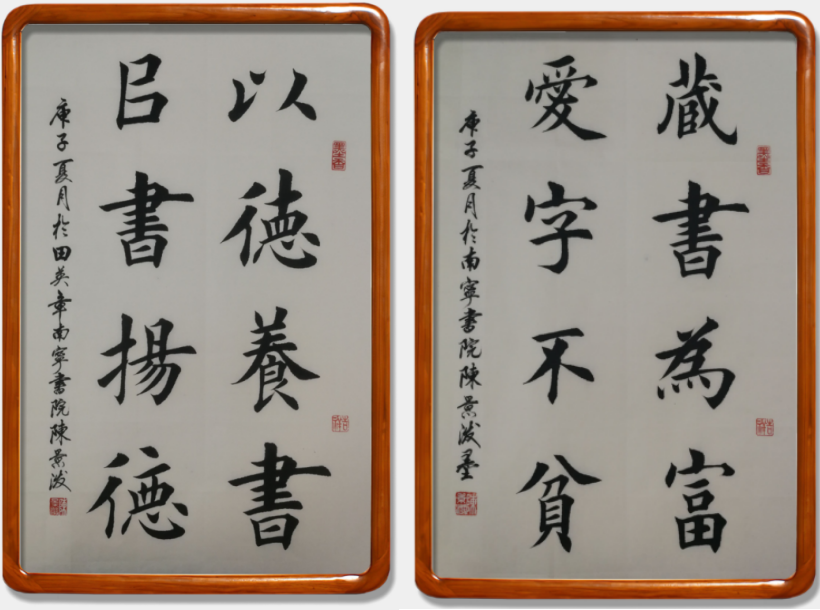 蔵書為富
愛字不貧
庚子夏月於南寧書院陳景泼墨
以德養書
㠯書揚德
庚子夏月於田英章南寧書院陳景泼